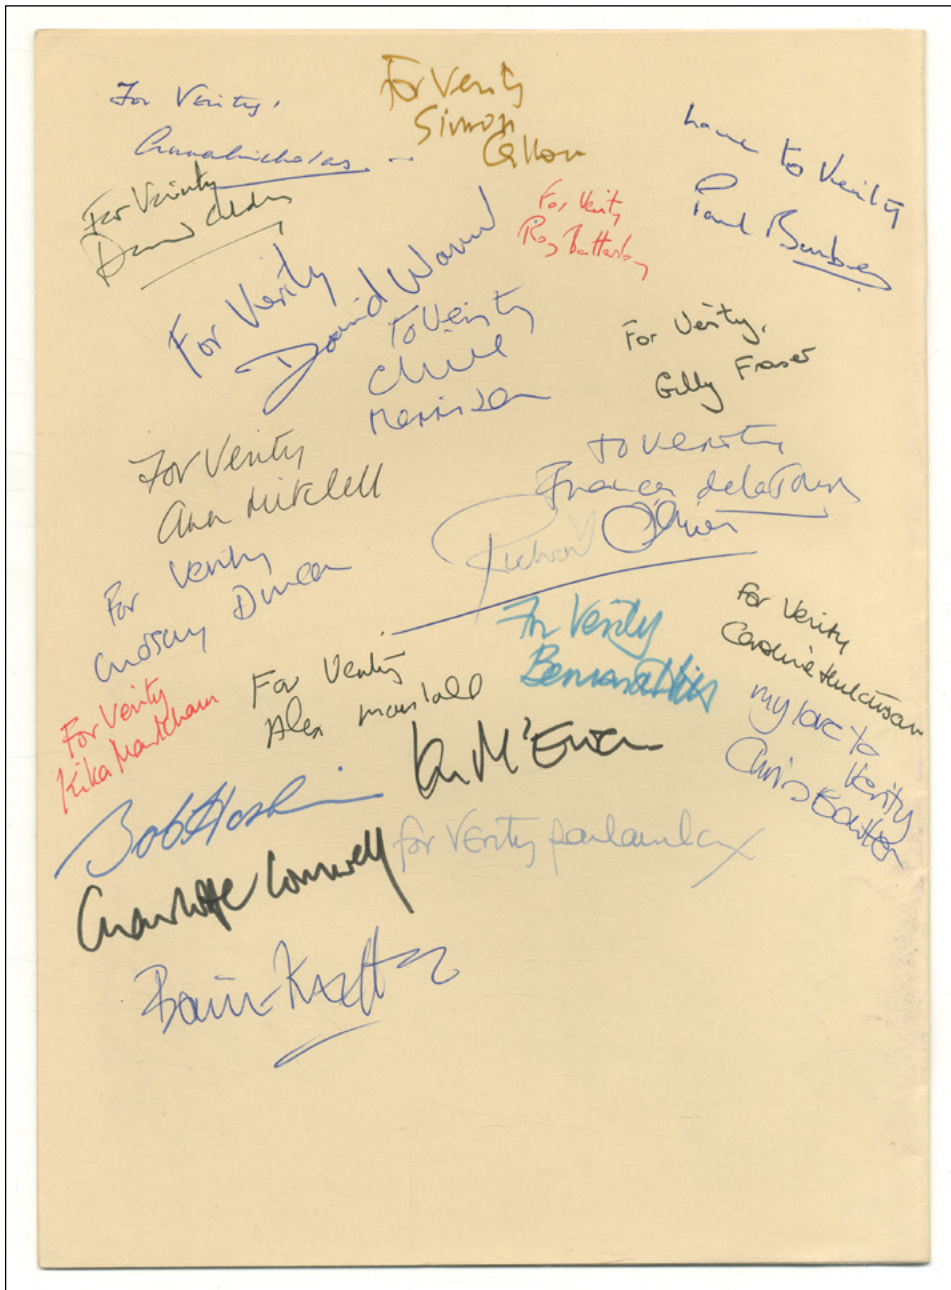 For Verity,
Anna Nicholas
For Verity
Simon
Callow
Love to Verity
Paul Barber
For Verity
David
For Verity
Roy Battersby
For Verity
David Warner
To Verity
Clive
Merrison
For Verity,
Gilly Fraser
For Verity
Ann Mitchell
to Verity
Frances de la Tour
Richard Olivier
For Verity
Lindsay Duncan
For Verity
Bernard Hill
For Verity
Caroline Hutchison
For Verity
Kika Markham
For Verity
Alex
Ian McEwan
my love to
Verity
Chris
Bob Hoskins
for Verity
Charlotte Cornwell